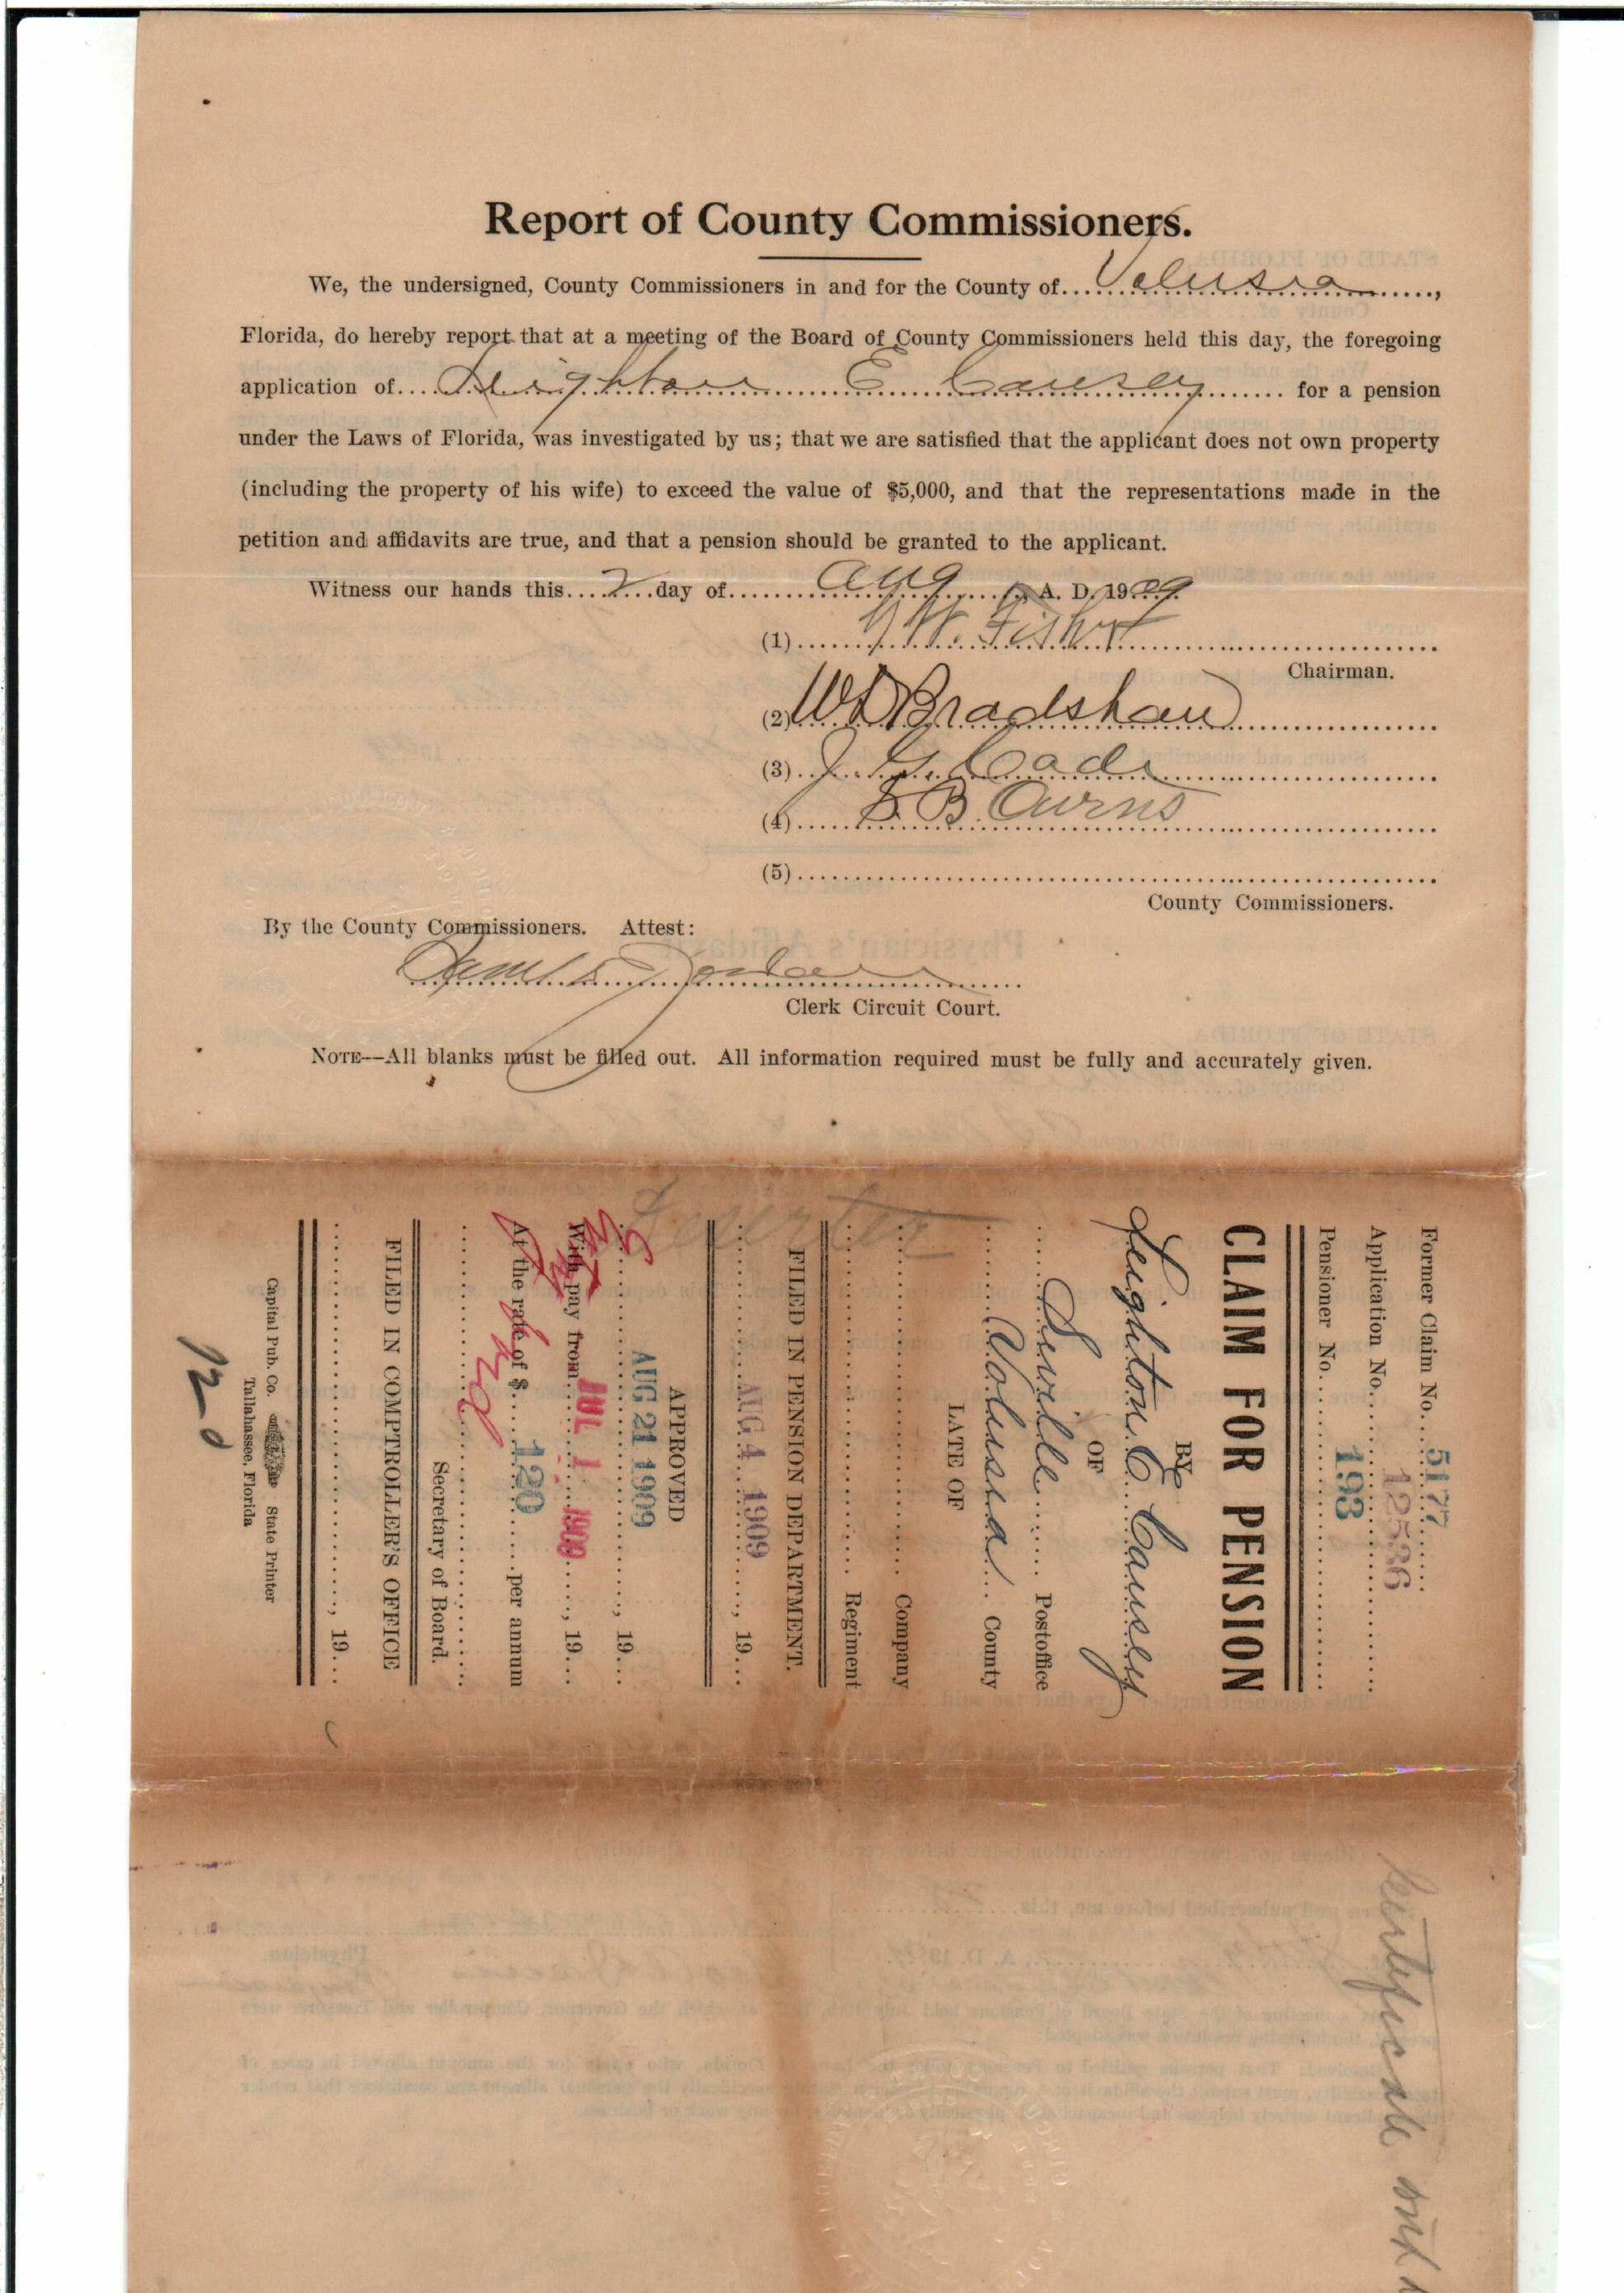 Report of County Commissioners.
We, the undersigned, County Commissioners in and for the County of Volusia,
Florida, do hereby report that at a meeting of the Board of County Commissioners held this day, the foregoing
application of Leighton E Causey for a pension
under the Laws of Florida, was investigated by us; that we are satisfied that the applicant does not own property
(including the property of his wife) to exceed the value of $5,000, and that the representations made in the
petition and affidavits are true, and that a pension should be granted to the applicant.
Witness our hands this 2 day of Aug A. D. 1909
(1) Fisher
Chairman.
(2) W D Bradshaw
(3) J. G. Cade
(4) B
(5)
County Commissioners.
By the County Commissioners. Attest:
Saml D Jordan
Clerk Circuit Court.
NOTE—All blanks must be filled out. All information required must be fully and accurately given.
Former Claim No. 5177
Application No. 12536
Pensioner No. 193
CLAIM FOR PENSION
BY
Leighton E Causey
OF
Seville Postoffice
Volusia County
LATE OF
Company
Regiment
Deserter
FILED IN PENSION DEPARTMENT.
AUG 4 1909, 19
APPROVED
AUG 21 1909, 19
With pay from JUL 1 1909, 19
At the rate of $ 120 per annum
Secretary of Board.
FILED IN COMPTROLLER'S OFFICE
, 19
Capital Pub. Co. State Printer
Tallahassee, Florida
Certificate